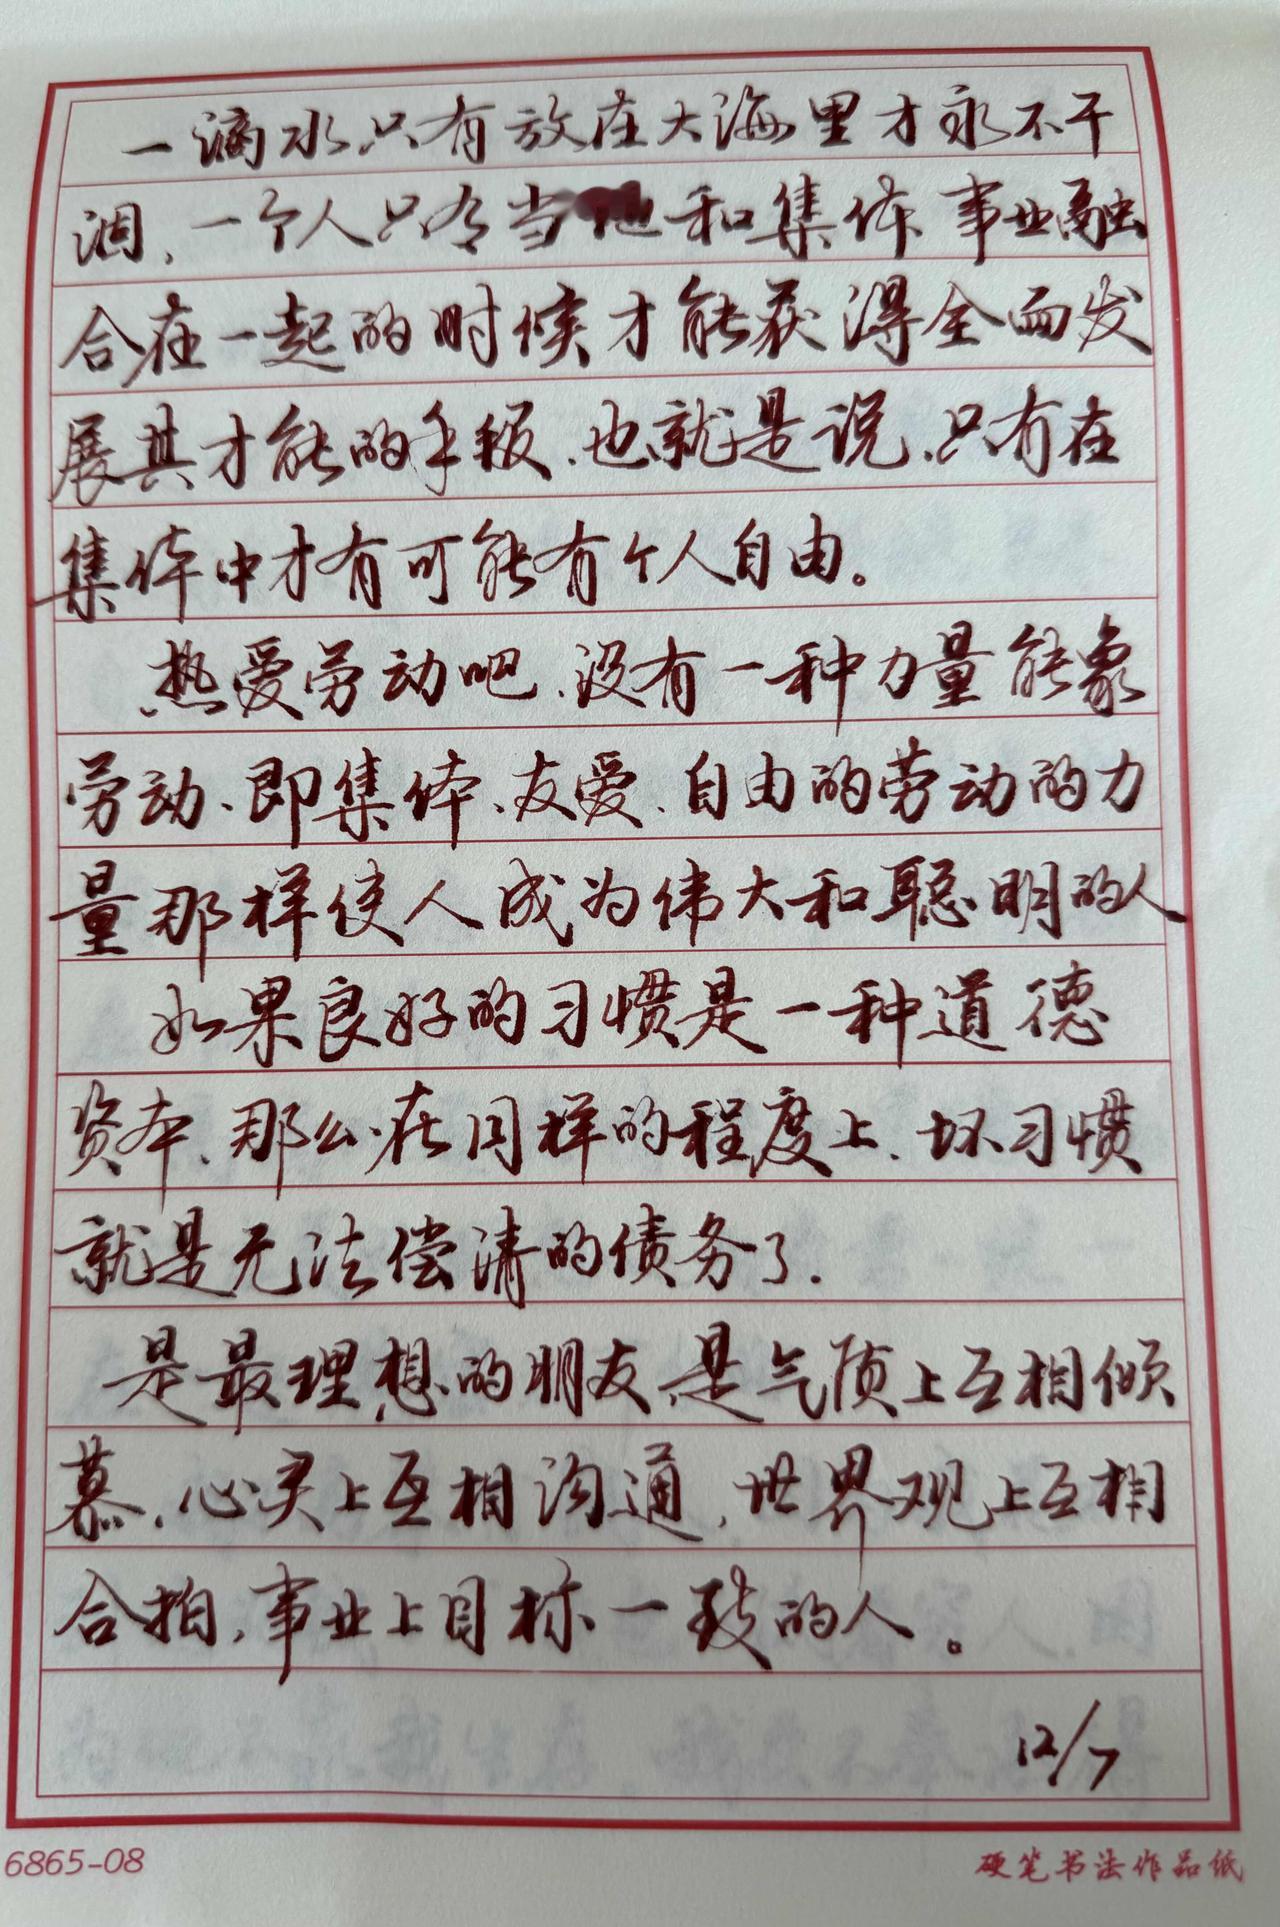 一滴水只有放在大海里才永不干
涸，一个人只有当他和集体事业融
合在一起的时候才能获得全面发
展其才能的手段，也就是说，只有在
集体中才有可能有个人自由。
热爱劳动吧、没有一种力量能象
劳动、即集体、友爱、自由的劳动的力
量那样使人成为伟大和聪明的人
如果良好的习惯是一种道德
资本、那么在同样的程度上、坏习惯
就是无法偿清的债务了.
是最理想的朋友、是气质上互相倾
慕，心灵上互相沟通，世界观上互相
合拍，事业上目标一致的人。
12/7
6865-08
硬笔书法作品纸